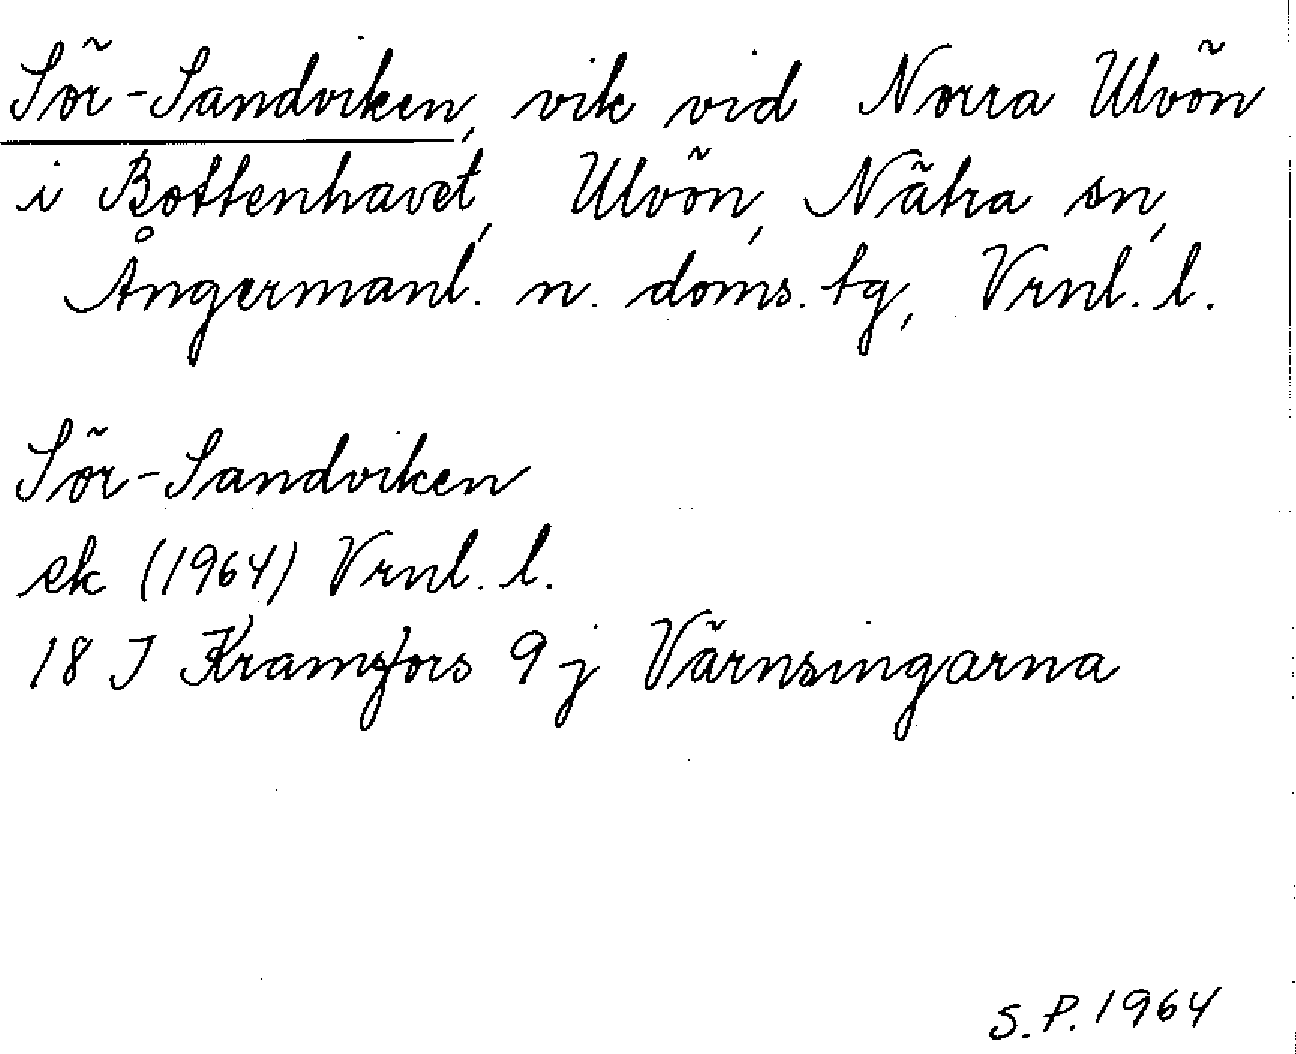 Sör-Sandviken, vik vid Norra Ulvön
i Bottenhavet, Ulvön, Nätra sn,
Ångermanl. n. doms. tg, Vrnl. l.
Sör-Sandviken
ek (1964) Vrnl. l.
18 J Kramsfors 9 j Värnsingarna
S.P. 1964